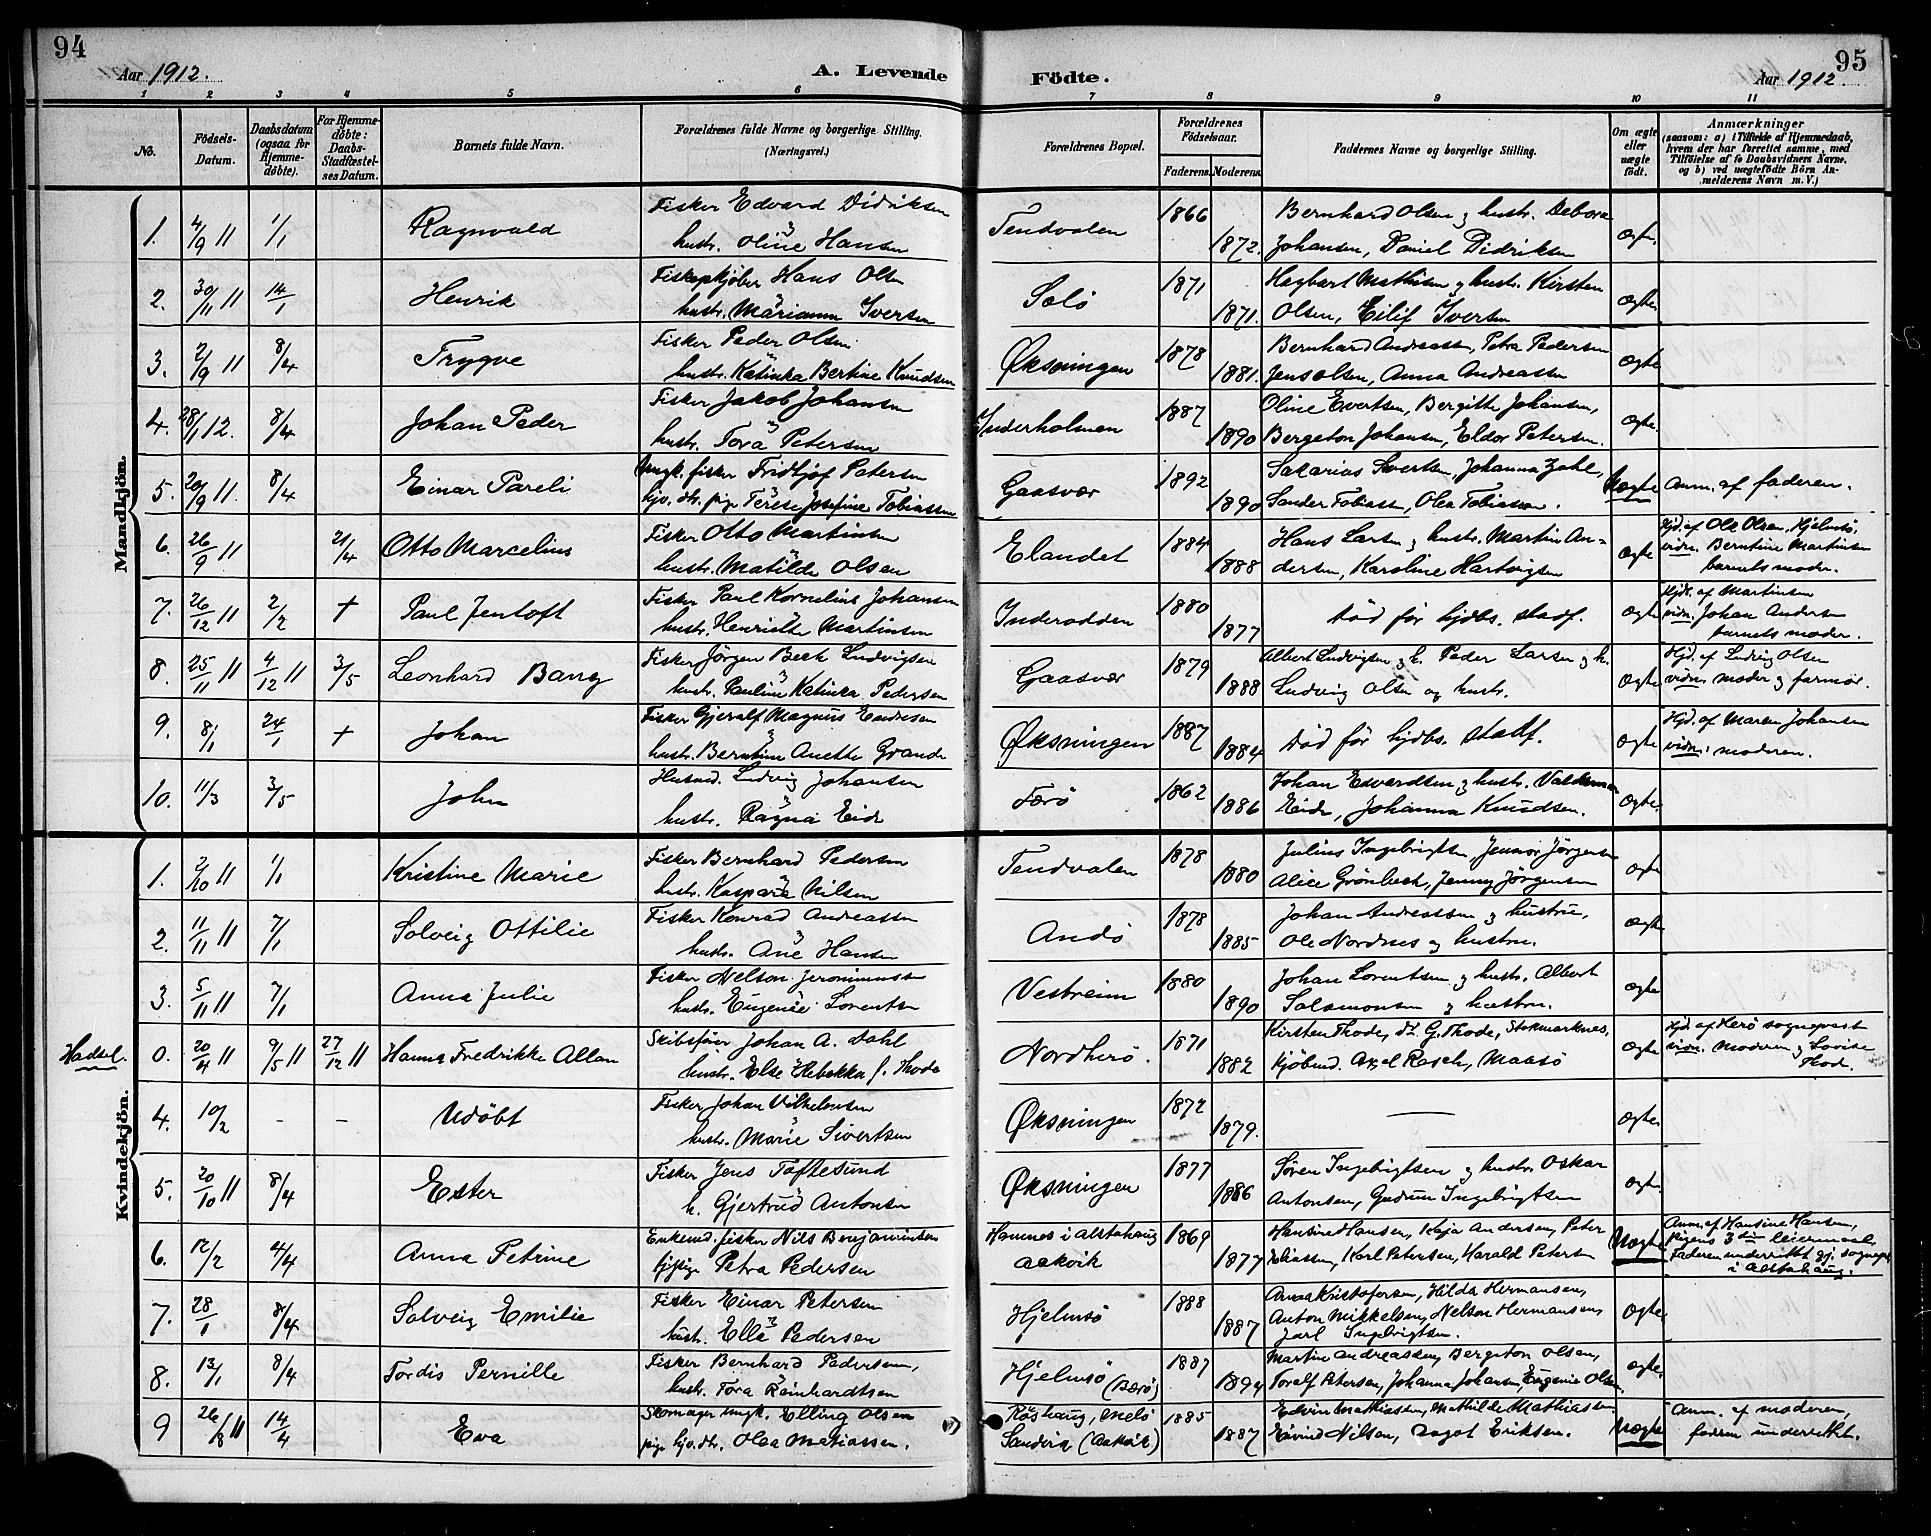 94
Aar 1912.
A. Levende
Födte.
Aar 1912
95
1 2 3 4 5 6 7 8 9 10 11
No.
Födsels-Datum.
Daabsdatum (ogsaa for Hjemmedöbte).
For Hjemmedöbte: Daabs-Stadfæstelses Datum.
Barnets fulde Navn.
Forældrenes fulde Navne og borgerlige Stilling. (Næringsvei.)
Forældrenes Bopæl.
Forældrenes Födselsaar.
Faderens. Moderens.
Faddernes Navne og borgerlige Stilling.
Om ægte eller uægte födt.
Anmærkninger (saasom: a) i Tilfælde af Hjemmedaab, hvem der har forrettet samme, med Tilföielse af to Daabsvidners Navne, og b) ved uægtefödte Börn Anmelderens Navn m. V.)
Mandkjön.
1. 4/9 11 1/1 Ragnvald Fisker Edvard Didriksen Tendvalen 1866 Bernhard Olsen og hustr. Debora ægte.
hustr. Oline Hansen 1872. Johansen, Daniel Didriksen
2. 30/11 11 14/1 Henrik Fiskopkjøber Hans Olsen Solø 1871 Hagbart Mathisen og hustr. Kirsten ægte.
hustr. Marianne Iversen 1871. Olsen, Eilif Iversen
3. 2/9 11 8/4 Trygve Fisker Peder Olsen. Øksningen 1878 Bernhard Andreassen, Petra Pedersen ægte
hustr. Katinka Bertine Knudsen 1881. Jens Olsen, Anna Andreassen
4. 28/1 12. 8/4 Johan Peder Fisker Jakob Johansen Inderholmen 1887 Oline Evertsen, Bergitte Johansen, ægte.
hustr. Tora Petersen 1890 Bergeton Johansen, Eldor Petersen.
5. 20/9 11. 8/4 Einar Pareli Ungk. fisker Fridtjof Petersen Gaasvær 1892 Sakarias Sivertsen, Johanna Zahl, Uægte Anm. af faderen.
hjv. dtr. pige Terese Josefine Tobiassen 1890 Sander Tobiassen, Olea Tobiassen.
6. 26/9 11 21/4 Otto Marcelius Fisker Otto Martinsen Elandet 1884 Hans Larsen og hustr. Martin An- ægte Hjd. af Ole Olsen, Hjelmsø,
hustr. Matilde Olsen 1888 dersen, Karoline Hartvigsen vidn. Berntine Martinsen
barnets moder.
7. 26/12 11 2/2 + Paul Jentoft Fisker Paul Kornelius Johansen Inderodden 1880 død før hjdbs. stadf. ægte Hjd. af Martinsen
hustr. Henriette Martinsen 1877 vidn. Johan Andersen
barnets moder.
8. 25/11 11 4/12 11 3/5 Leonhard Bang Fisker Jørgen Beck Ludvigsen Gaasvær 1879 Albert Ludvigsen og h. Peder Larsen og h. ægte Hjd. af Ludvig Olsen
hustr. Pauline Katinka Pedersen 1888 Ludvig Olsen og hustr. vidn. moder og farmor.
9. 8/1 24/1 + Johan Fisker Gjeralf Magnus Endresen Øksningen 1887 død før hjdbs. stadf. ægte Hjd. af Maren Johansen
hustr. Berntine Anette Grande 1884 vidn. moderen.
10. 11/3 3/5 John Husmd. Ludvig Johansen Færø 1862 Johan Edvardsen og hustr. ægte.
hustr. Ragna Eide 1886 Eide, Johanna Knudsen.
Kvindekjön.
1. 2/10 11 1/1 Kristine Marie Fisker Bernhard Pedersen Tendvalen 1878 Julius Ingebrigtsen Jørgensen ægte
hustr. Kaspara Nilsen 1880 Alice Grønbech, Jenny Jørgensen
2. 11/11 11 7/1 Solveig Ottilie Fisker Konrad Andreassen Andø 1878 Johan Andreassen og hustru, ægte
hustr. Ane Hansen 1885 Ole Nordnes og hustru.
3. 5/11 11 7/1 Anna Julie Fisker Nelson Jeronimussen Vestreim 1880 Johan Lorentsen og hustr. Albert ægte
hustr. Eugenie Lorentsen 1890 Salamonsen og hustru.
Hadsel. 0. 20/4 11 9/5 11 27/12 11 Hanna Fredrikke Allan Skibsfører Johan A. Dahl Nordherø. 1871 Kirsten Thode, G. Thode, Stokmarknes, ægte Hjd. af Herø sogneprest
hustr. Else Rebekka f. Thode 1882 Kjøbmd. Axel Rasch, Maasø vidn. Moderen og Lovise
Thode.
4. 10/2 - - Udøbt Fisker Johan Vilhelmsen Øksningen 1872 — ægte.
hustr. Marie Sivertsen 1879.
5. 20/10 11 8/4 Ester Fisker Jens Toftesund Øksningen 1877 Søren Ingebrigtsen og hustr. Oskar ægte.
h. Gjertrud Antonsen 1886 Antonsen, Gudrun Ingebrigtsen
6. 12/2 4/4 Anna Petrine Enkemd. fisker Nils Benjaminsen Hamnes i Alstahaug 1869 Hansine Hansen, Kaja Andersen, Peter Uægte Anm. af Hansine Hansen,
Petra Pedersen Aakvik 1877 Eliassen, Karl Petersen, Harald Petersen pigens 3die leiermaal.
Faderen underrettet gj. sognepr.
i Alstahaug.
7. 28/1 8/4 Solveig Emilie Fisker Einar Petersen Hjelmsø 1888 Anna Kristofersen, Hilda Hermansen, ægte
hustr. Ella Pedersen 1887 Anton Mikkelsen, Nelson Hermansen,
Jarl Ingebrigtsen.
8. 13/1 8/4 Tordis Pernille Fisker Bernhard Pedersen, Hjelmsø 1887 Martin Andreassen, Bergeton Olsen, ægte.
hustr. Tora Reinhardtsen (Bærø) 1894 Toralf Petersen, Johanna Johansen, Eugenie Olsen.
9 26/8 11 14/4 Eva Skomager ungk. Elling Olsen Røshaug, Melø 1885 Edvin Mathiassen, Mathilde Mathiassen Uægte Anm. af moderen,
pige hjv. dtr. Olea Matiassen. Sandvik (Aakvik) 1887 Eivind Nilsen, Dagot Eriksen. faderen underrettet.